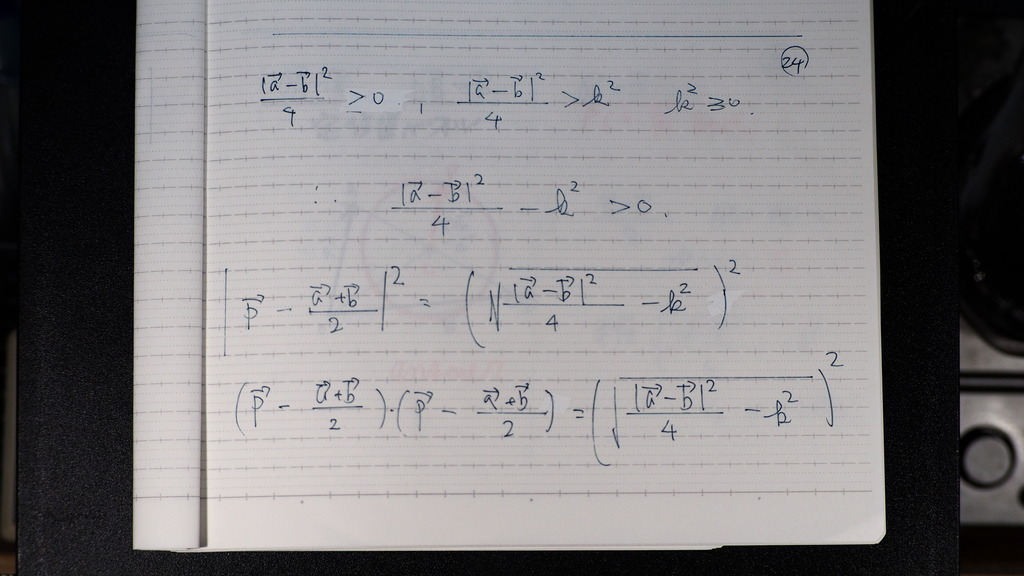 24
|a⃗-b⃗|²/4 ≥ 0, |a⃗-b⃗|²/4 > k² k² ≥ 0.
∴ |a⃗-b⃗|²/4 - k² > 0.
|p⃗ - (a⃗+b⃗)/2|² = (√(|a⃗-b⃗|²/4 - k²))²
(p⃗ - (a⃗+b⃗)/2)・(p⃗ - (a⃗+b⃗)/2) = (√(|a⃗-b⃗|²/4 - k²))²